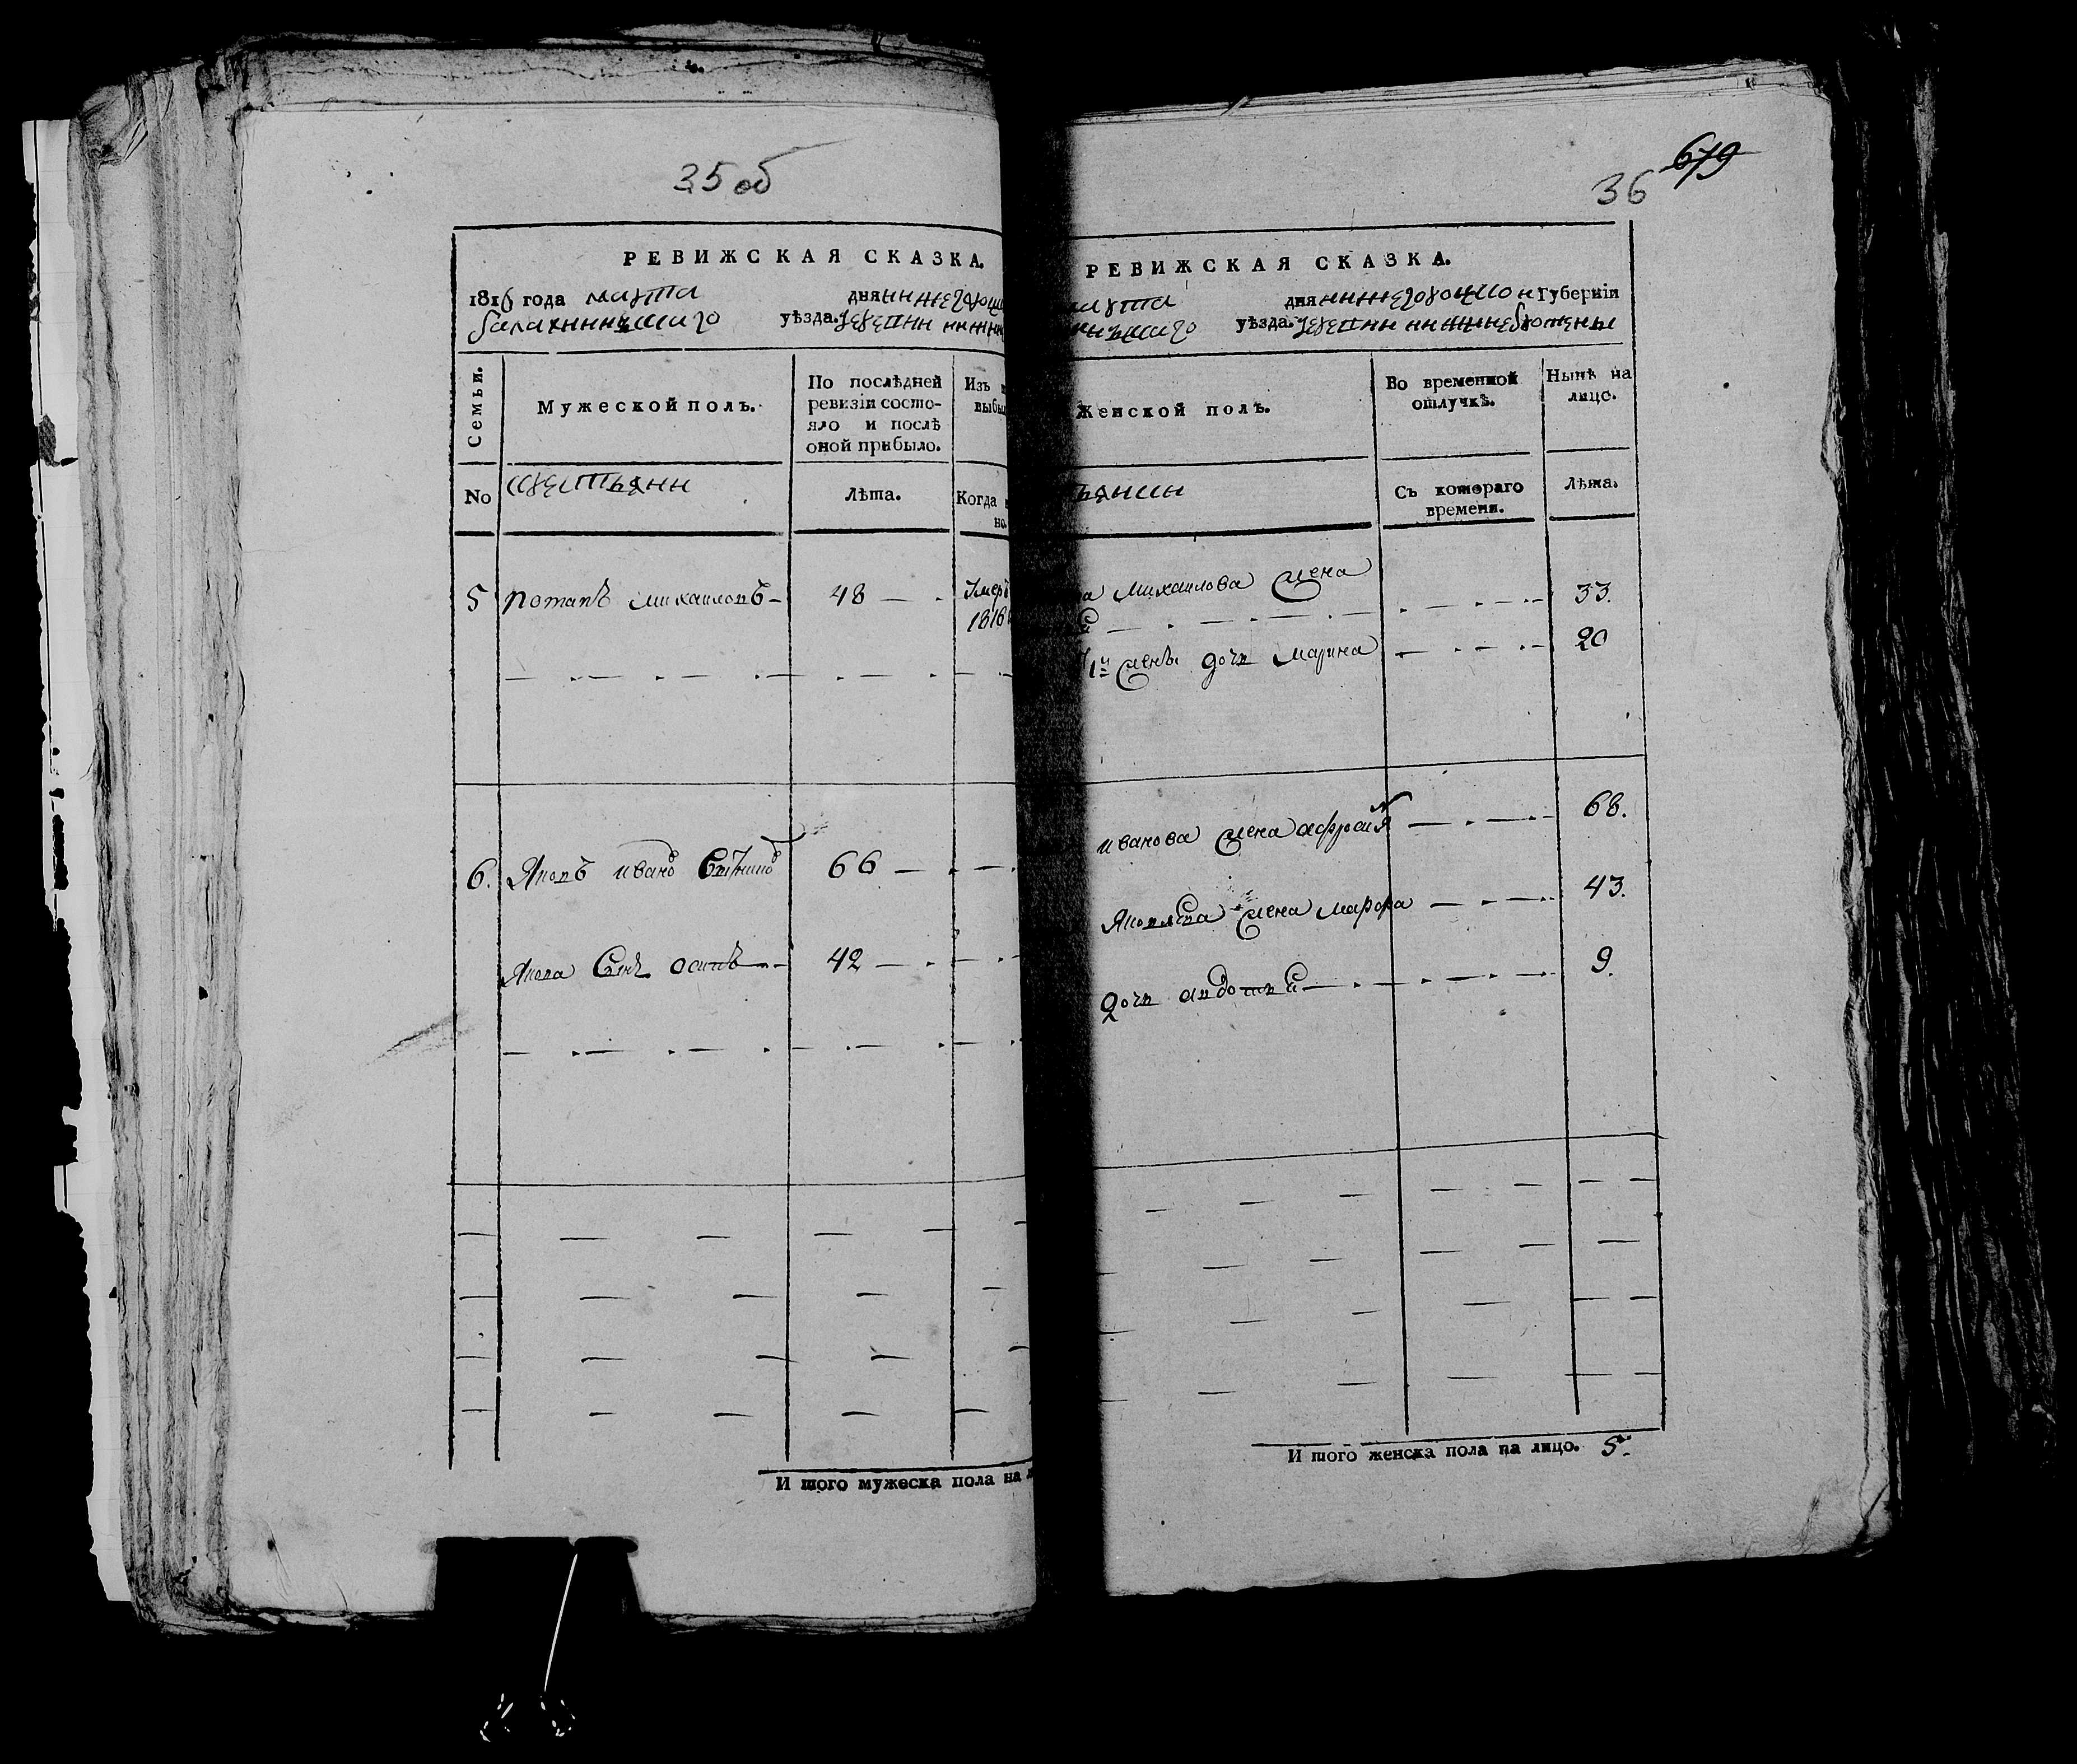 35 об
РЕВИЖСКАЯ СКАЗКА.
1816 года марта дня нижегороц
балахнинскаго уѣзда. деревни нижн
Семьи.
Мужеской полъ.
По послѣдней ревизіи состояло и послѣ оной прибыло.
Изъ
выбы
No
крестьяни
Лѣта.
Когда
но.
5 потапъ михаиловъ 48 Умеръ
1816
6. Яковъ ивано 66
Якова Сынъ осипъ 42
И того мужеска пола на
679
36
РЕВИЖСКАЯ СКАЗКА.
марта дня нижегороцкой Губерніи
нскаго уѣзда. деревни
Женской полъ.
Во временной отлучкѣ.
Нынѣ на лицо.
ьянки
Съ котораго времени.
Лѣта.
а михаилова жена 33.
1й жены дочь марина 20
иванова жена 68.
Яковлева жена марфа 43.
дочь авдотья 9.
И того женска пола на лицо. 5.